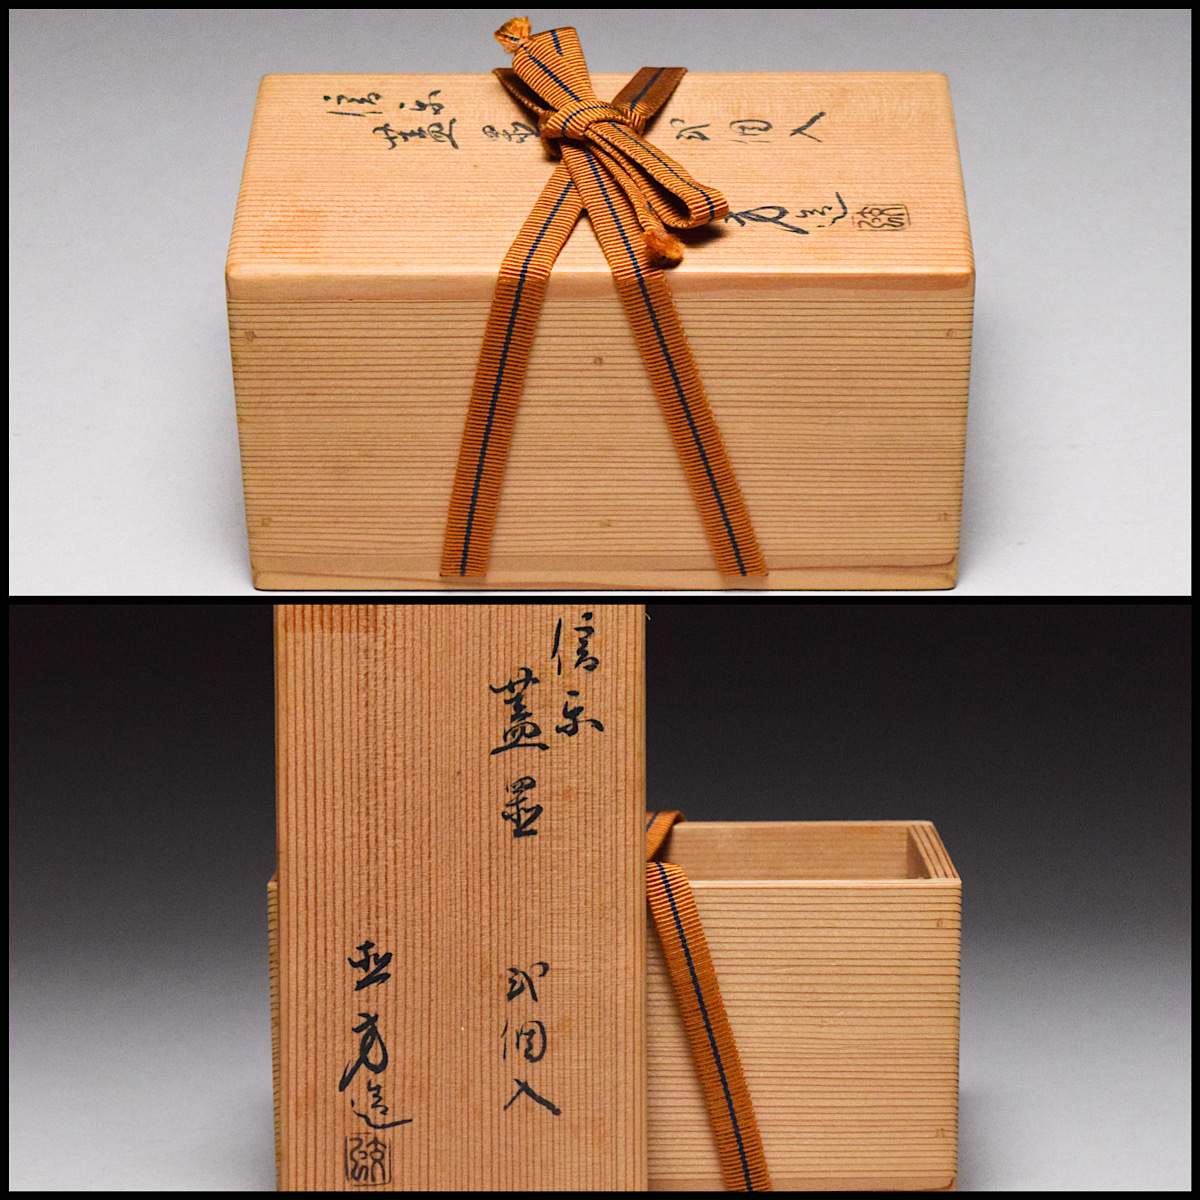 信楽
蓋置 弐個入
方造
信楽
蓋置 弐個入
直方造